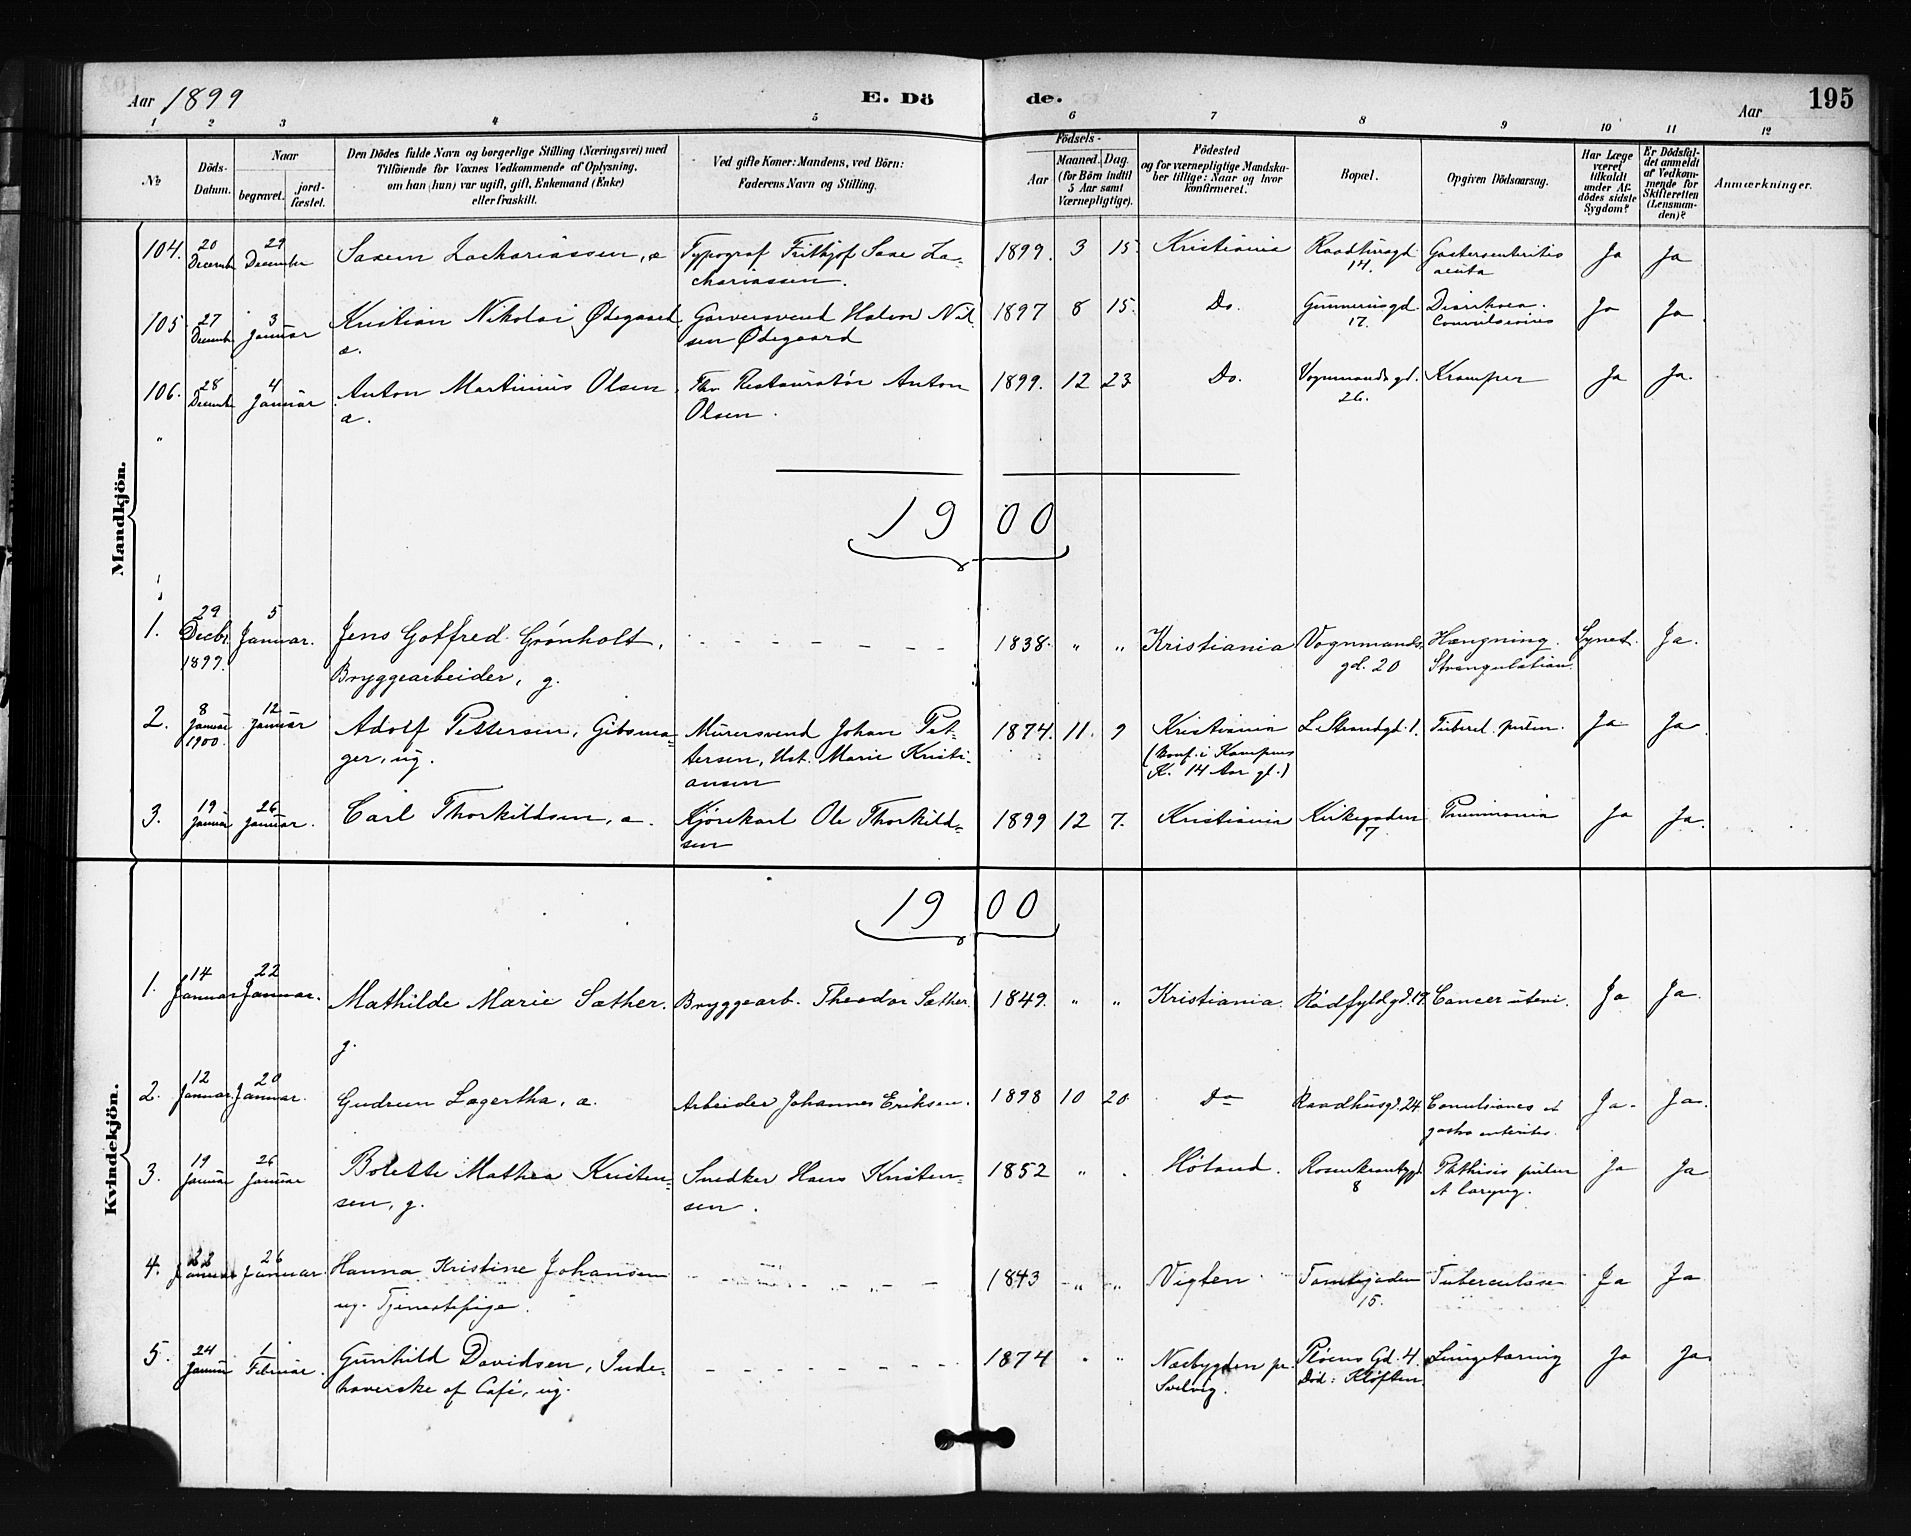 Aar 1899 E. Dö de. Aar 195
1 2 3 4 5 6 7 8 9 10 11 12
№
Döds-Datum.
Naar
begravet.
jord-fæstet.
Den Dödes fulde Navn og borgerlige Stilling (Næringsvei) med
Tilföiende for Voxnes Vedkommende af Oplysning,
om han (hun) var ugift, gift, Enkemand (Enke)
eller fraskilt.
Ved gifte Koner: Mandens, ved Börn:
Faderens Navn og Stilling.
Födsels-
Aar
Maaned. Dag.
(for Börn indtil
5 Aar samt
Værnepligtige).
Födested
og for værnepligtige Mandska-
ber tillige: Naar og hvor
konfirmeret.
Bopæl.
Opgiven Dödsaarsag.
Har Læge
været
tilkaldt
under Af-
dödes sidste
Sygdom?
Er Dödsfal-
det anmeldt
af Vedkom-
mende for
Skifteretten
(Lensman-
den)?
Anmærkninger.
Mandkjön.
104. 20 December 29 December Saxem Zachariassen, a Typograf Fritkjof Saxe Za- 1899. 3 15. Kristiania Raadhusgd. Gastroenteritis Ja Ja
chariassen. 14. acuta
105 27 Decembr 3 Januar Kristian Nikolai Ødegaard Garversvend Halvor Nil 1897 8 15. Do. Gunnerusgd. Diarrhoea. Ja Ja.
a. sen Ødegaard 17. Convulsiones
106. 28 Decembr 4 Januar Anton Martinius Olsen Fhv. Restauratør Anton 1899. 12 23. Do. Vognmandsgd. Kramper Ja Ja.
a. Olsen. 26.
"
1900
1. 29 Decbr. 1899. 5 Januar. Jens Gotfred Grønholt, - - - 1838. " " Kristiania Vognmands- Hængning. Synet. Ja.
Bryggearbeider, g. gd. 20 Strangulation.
2. 8 Januar 1900. 12 Januar Adolf Pettersen, Gibsma- Murersvend Johan Pet- 1874. 11. 9 Kristiania L. Strandgd. 1. Tubercl. pulm. Ja Ja.
ger, ug. tersen, Hst. Marie Kristi- (Konf. i Kampens
ansen K. 14 Aar gl.)
3. 19 Januar 26 Januar. Carl Thorkildsen, a. Kjørekarl Ole Thorkild- 1899 12 7. Kristiania Kirkegaden Pneumonia Ja Ja.
sen 7
Kvindekjön.
1900
1. 14 Januar 22 Januar. Mathilde Marie Sæther. Bryggearb. Theodor Sæther. 1849. " " Kristiania. Rødfyldgd. 19. Cancer uteri. Ja Ja.
g.
2. 12 Januar. 20 Januar. Gudrun Lagertha, a. Arbeider Johannes Eriksen. 1898 10 20. Do Raadhusgd. 24 Convulsiones et Ja. Ja.
gastro enterites.
3. 19 Januar 26 Januar Bolette Mathea Kristen- Snedker Hans Kristen- 1852 " . Høland. Rosenkrantzgd. Phthisis pulm Ja Ja
sen, g. sen. 8 et laryng.
4. 22 Januar 26 Januar. Hanna Kristine Johansen - - - 1843 " " Vigten. Tomtegaden Tuberculose Ja Ja
ug. Tjenestepige. 15.
5. 24 Januar 1 Februar. Gunhild Davidsen, Inde- - - - 1874 " " Næsbygden pr. Pløens Gd. 4. Lungetæring Ja Ja
haverske af Café, ug. Svelvig. Død: Kløften.